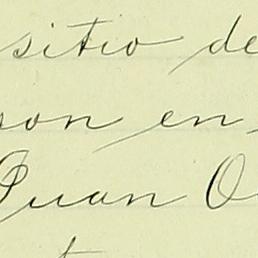 sitio de
son en
Juan O